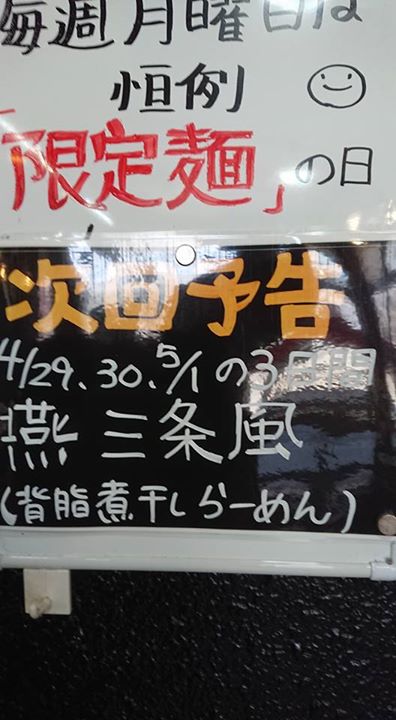 毎週月曜日は
恒例
「限定麺」の日
次回予告
4/29、30、5/1の3日間
燕三条風
(背脂煮干しらーめん)